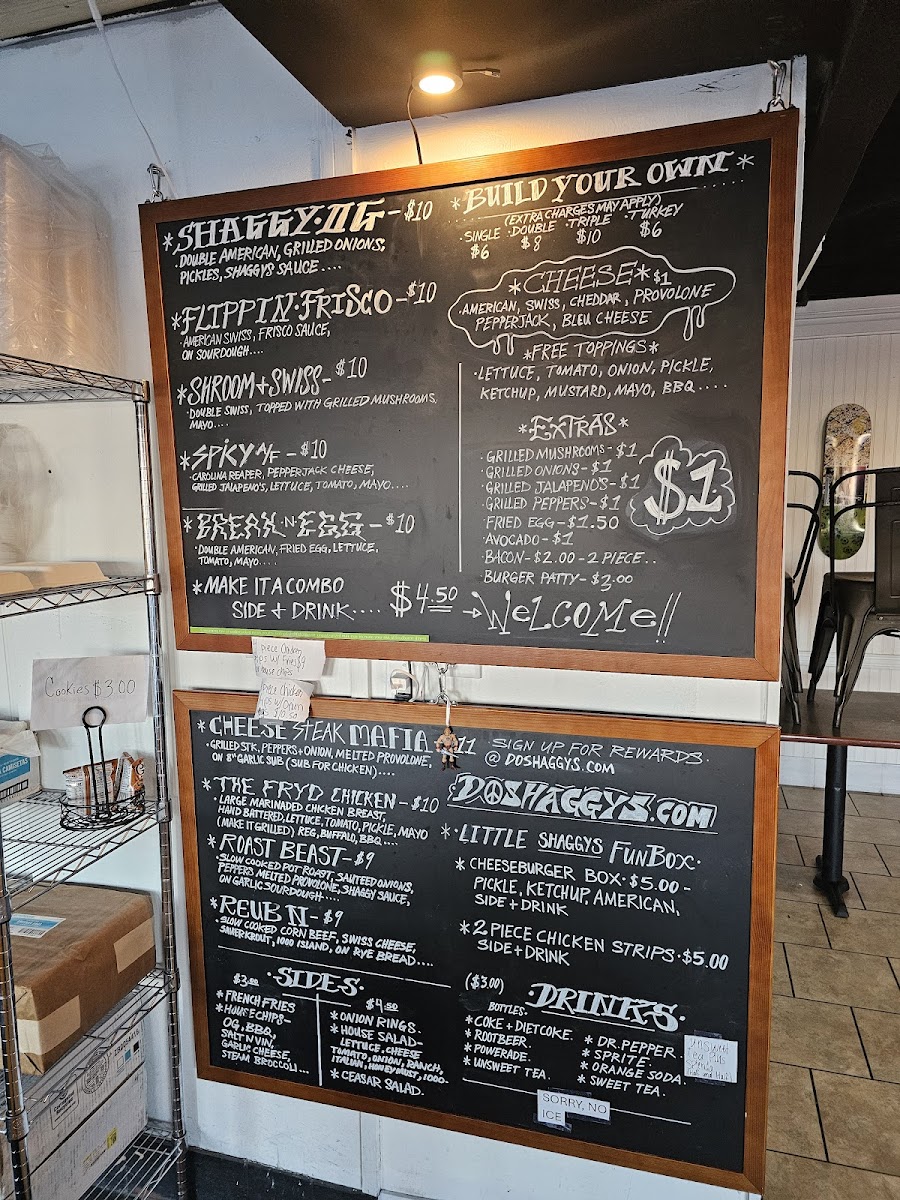 *SHAGGY·OG-$10
·DOUBLE AMERICAN, GRILLED ONIONS,
PICKLES, SHAGGYS SAUCE....
*FLIPPIN·FRISCO-$10
·AMERICAN SWISS, FRISCO SAUCE,
ON SOURDOUGH....
*SHROOM+SWISS-$10
·DOUBLE SWISS, TOPPED WITH GRILLED MUSHROOMS,
MAYO....
*SPICY A/F-$10
·CAROLINA REAPER, PEPPERJACK CHEESE,
GRILLED JALAPENO'S, LETTUCE, TOMATO, MAYO....
*BREAK·N·EGG-$10
·DOUBLE AMERICAN, FRIED EGG, LETTUCE,
TOMATO, MAYO....
*MAKE IT A COMBO
SIDE + DRINK.... $4.50
*BUILD YOUR OWN*
(EXTRA CHARGES MAY APPLY)
·SINGLE ·DOUBLE ·TRIPLE ·TURKEY
$6 $8 $10 $6
*CHEESE*$1
·AMERICAN, SWISS, CHEDDAR, PROVOLONE
PEPPERJACK, BLEU CHEESE
*FREE TOPPINGS*
·LETTUCE, TOMATO, ONION, PICKLE,
KETCHUP, MUSTARD, MAYO, BBQ.....
*EXTRAS*
·GRILLED MUSHROOMS-$1
·GRILLED ONIONS-$1
·GRILLED JALAPENO'S-$1
·GRILLED PEPPERS-$1
·FRIED EGG-$1.50
·AVOCADO-$1
·BACON-$2.00-2 PIECE..
·BURGER PATTY-$3.00
$1
→WELCOME!!
Cookies $3.00
piece Chicken
w/ Fries $9
house chips
piece Chicken
*CHEESE STEAK MAFIA-$11
·GRILLED STK, PEPPERS+ONION, MELTED PROVOLONE,
ON 8" GARLIC SUB (SUB FOR CHICKEN)....
*THE FRYD CHICKEN-$10
·LARGE MARINADED CHICKEN BREAST,
HAND BATTERED, LETTUCE, TOMATO, PICKLE, MAYO
(MAKE IT GRILLED) REG, BUFFALO, BBQ....
*ROAST BEAST-$9
·SLOW COOKED POT ROAST, SAUTEED ONIONS,
PEPPERS MELTED PROVOLONE, SHAGGY SAUCE,
ON GARLIC SOURDOUGH....
*REUB N-$9
·SLOW COOKED CORN BEEF, SWISS CHEESE,
SAUERKROUT, 1000 ISLAND, ON RYE BREAD....
·SIDES·
$3.00
*FRENCH FRIES
*HOUSE CHIPS-
OG, BBQ,
SALT N VIN,
GARLIC CHEESE,
STEAM BROCCOLI...
$4.50
*ONION RINGS.
*HOUSE SALAD-
LETTUCE, CHEESE
TOMATO, ONION, RANCH,
ITALIAN, HONEY MUST, 1000-
*CEASAR SALAD.
SIGN UP FOR REWARDS.
@ DOSHAGGYS.COM
DOSHAGGYS.COM
*·LITTLE SHAGGYS FUNBOX·
*CHEESEBURGER BOX·$5.00-
PICKLE, KETCHUP, AMERICAN,
SIDE+DRINK
*2 PIECE CHICKEN STRIPS·$5.00
SIDE+DRINK
($3.00) ·DRINKS·
BOTTLES·
*COKE+DIET COKE.
*ROOTBEER.
*POWERADE.
*UNSWEET TEA.
*DR. PEPPER.
*SPRITE.
*ORANGE SODA.
*SWEET TEA.
SORRY, NO
ICE